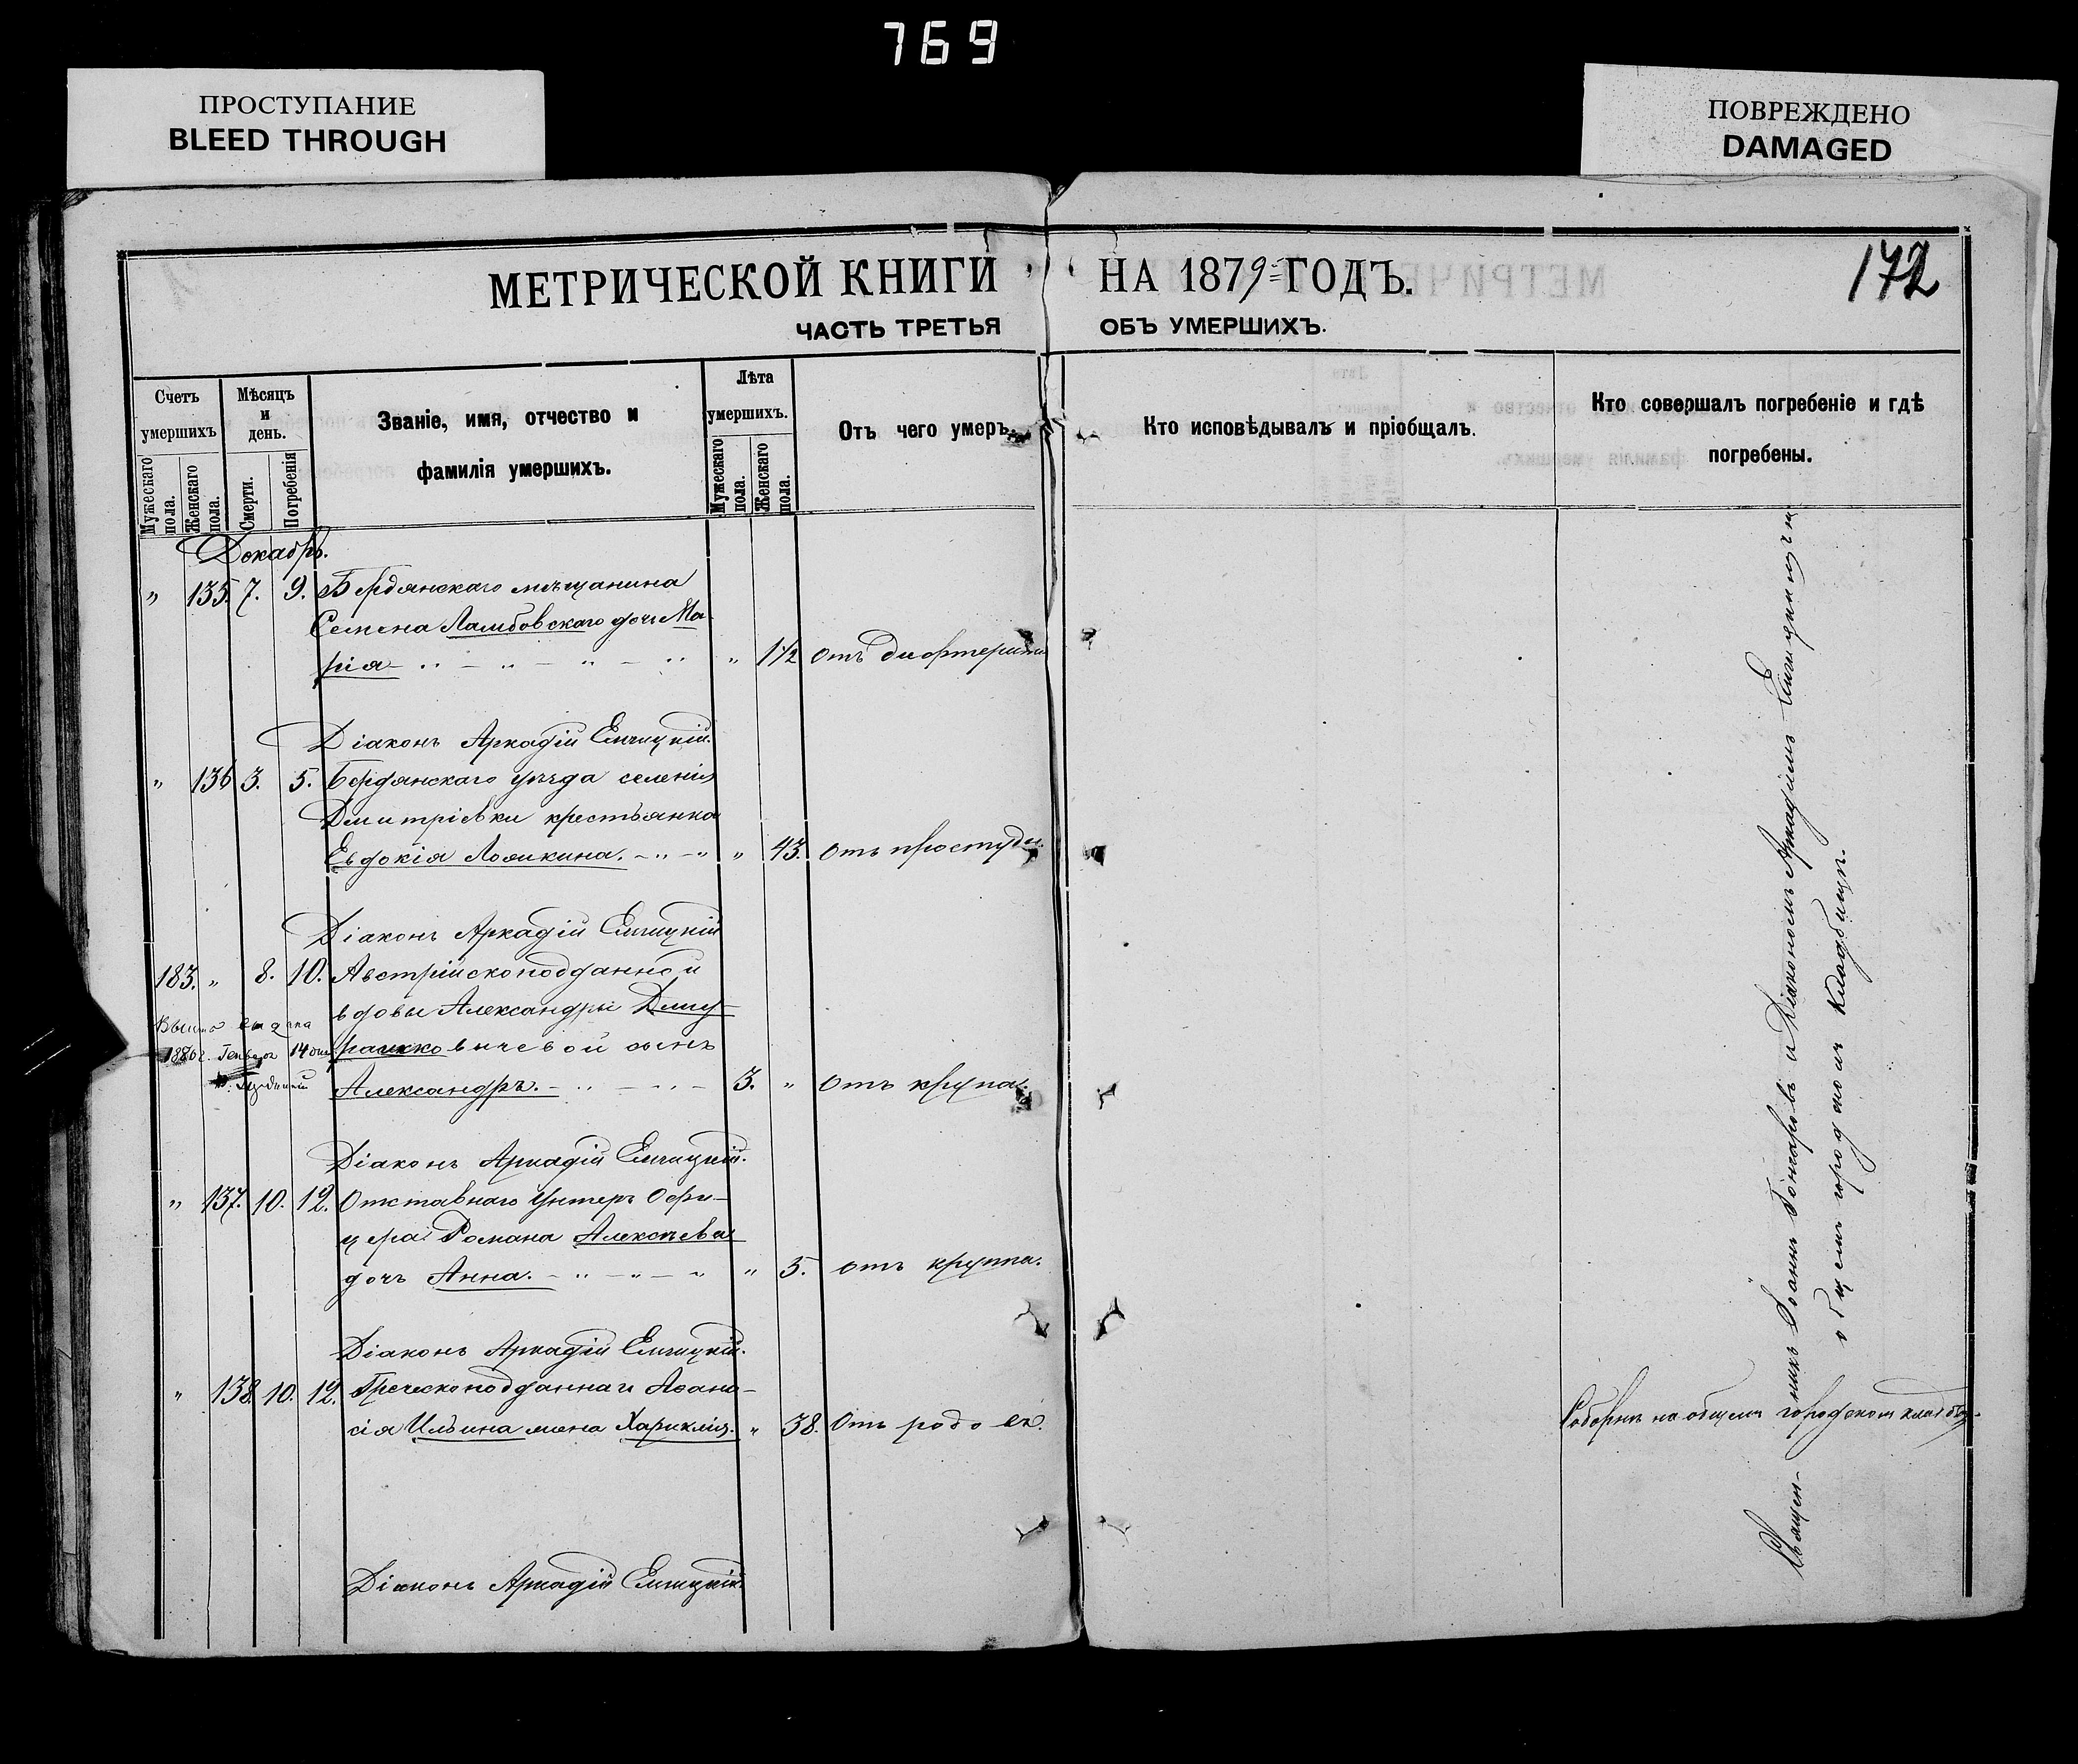 769
ПРОСТУПАНИЕ
BLEED THROUGH
ПОВРЕЖДЕНО
DAMAGED
МЕТРИЧЕСКОЙ КНИГИ НА 1879 ГОДЪ.
172
ЧАСТЬ ТРЕТЬЯ ОБЪ УМЕРШИХЪ.
Счетъ умершихъ
Мужескаго пола.
Женскаго пола.
Мѣсяцъ и день.
Смерти.
Погребенія
Званіе, имя, отчество и
фамилія умершихъ.
Лѣта умершихъ.
Мужескаго пола.
Женскаго пола.
Отъ чего умеръ.
Кто исповѣдывалъ и пріобщалъ.
Кто совершалъ погребеніе и гдѣ
погребены.
Декабрь.
" 135. 7. 9. Бердянскаго мѣщанина
Семена Ламбовскаго дочь Ма-
рія " 1 1/2 отъ дифтерита
Діаконъ Аркадій
" 136 3. 5. Бердянскаго уѣзда селенія
Дмитріевки крестьянка
Евдокія " 43. отъ простуды
Діаконъ Аркадій
183. " 8. 10. Австрійскоподданной
вдовы Александры
сынъ
1880 г. Генваря 14 дня
Александръ. 3. " отъ крупа.
Діаконъ Аркадій
" 137. 10. 12. Отставнаго Унтеръ Офи-
цера Романа Алексѣева
дочь Анна. " 5. отъ круппа.
Діаконъ Аркадій
" 138. 10. 12. Греческоподданнаго Аѳана-
сія Ильина жена Хариклія. " 38. Отъ родовъ.
Діаконъ Аркадій
Священникъ Іоаннъ Гончаровъ и Діакономъ Аркадіемъ
общемъ городскомъ кладбищѣ.
на общемъ городскомъ кладби-